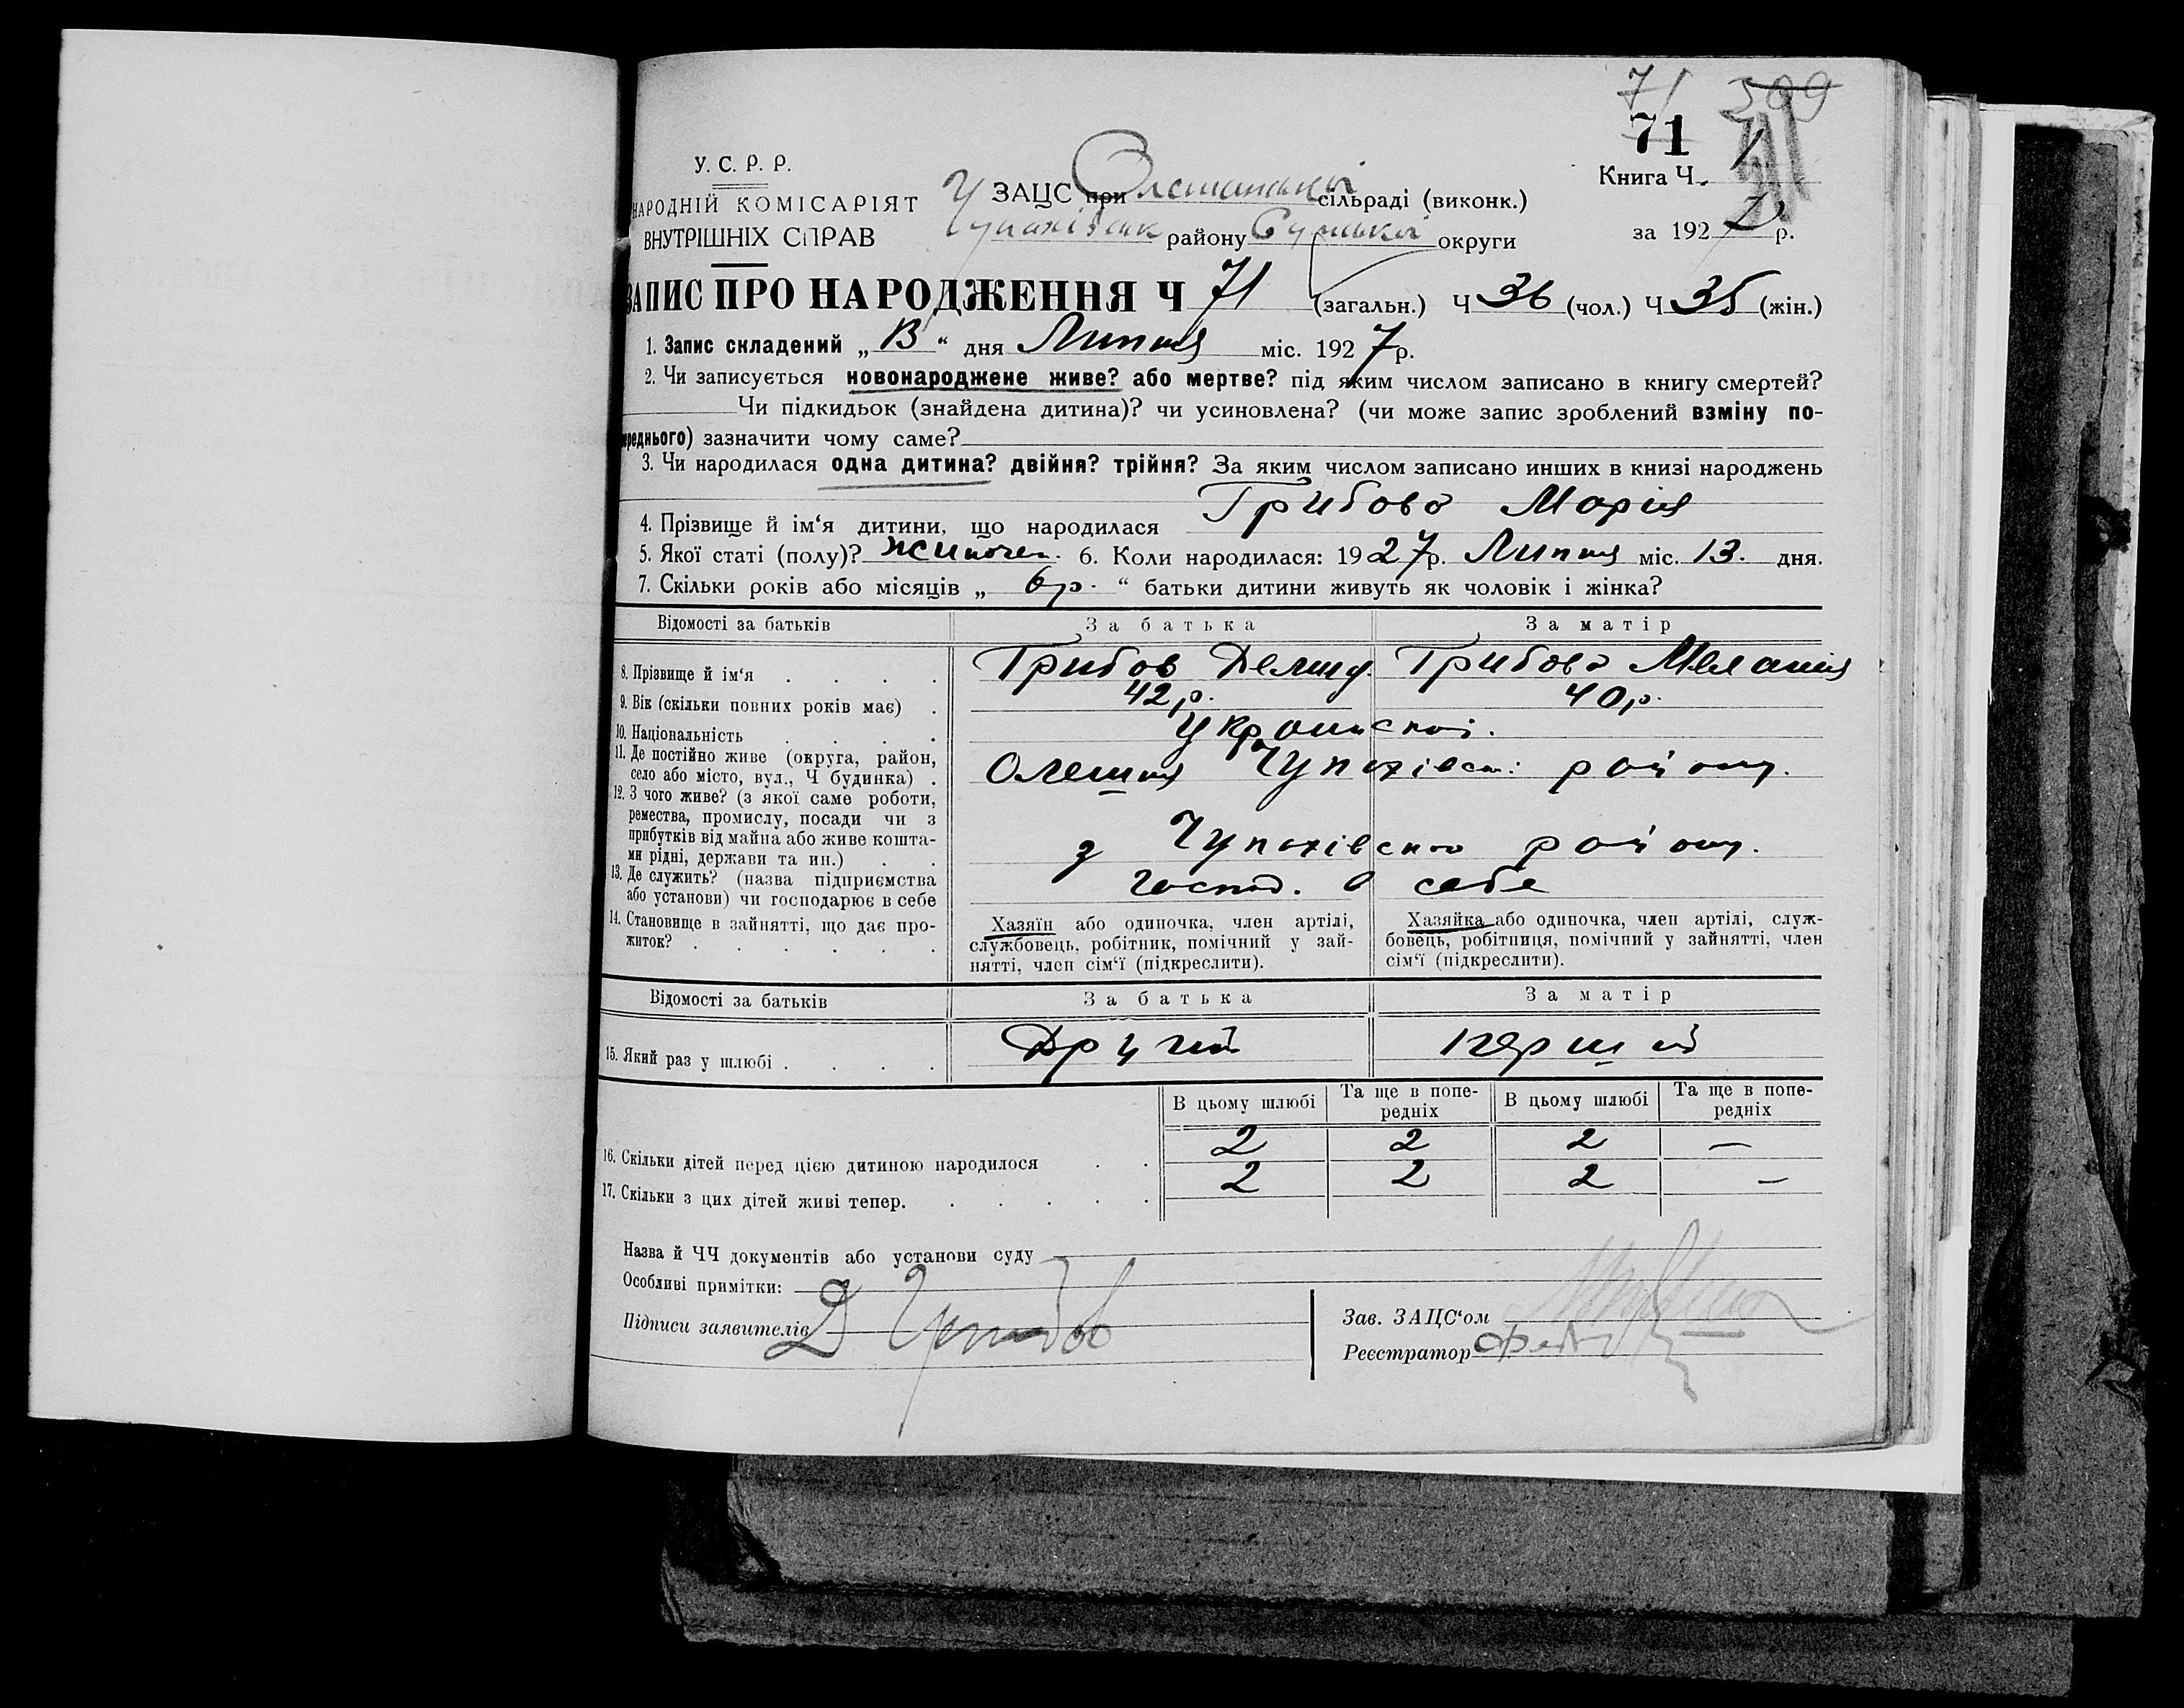 71 309
71
У. С. Р. Р.
НАРОДНІЙ КОМІСАРІЯТ
ВНУТРІШНІХ СПРАВ
У ЗАЦС при сільраді (виконк.)
Чупахівськ району Сумської округи
Книга Ч. 1
за 1927 р.
ЗАПИС ПРО НАРОДЖЕННЯ Ч 71 (загальн.) Ч 36 (чол.) Ч 35 (жін.)
1. Запис складений „ “ дня Липня міс. 1927 р.
2. Чи записується новонароджене живе? або мертве? під яким числом записано в книгу смертей?
Чи підкидьок (знайдена дитина)? чи усиновлена? (чи може запис зроблений взміну по-
ереднього) зазначити чому саме?
3. Чи народилася одна дитина? двійня? трійня? За яким числом записано инших в книзі народжень
4. Прізвище й ім‘я дитини, що народилася Грибова Марія
5. Якої статі (полу)? жиночеи. 6. Коли народилася: 1927 р. Липня міс. 13. дня.
7. Скільки років або місяців „ 6 р. “ батьки дитини живуть як чоловік і жінка?
Відомості за батьків За батька За матір
8. Прізвище й ім‘я Грибов Демид. Грибова Меланія
9. Вік (скільки повних років має) 42 р. 40 р.
10. Національність Українскої.
11. Де постійно живе (округа, район,
село або місто, вул., Ч будинка) Олешня Чупахівск: району.
12. З чого живе? (з якої саме роботи,
ремества, промислу, посади чи з
прибутків від майна або живе кошта-
ми рідні, держави та ин.) з Чупахівского району.
13. Де служить? (назва підприємства
або установи) чи господарює в себе госпód. в себе
14. Становище в зайнятті, що дає про-
житок?
Хазяїн або одиночка, член артілі,
службовець, робітник, помічний у зай-
нятті, член сім‘ї (підкреслити).
Хазяйка або одиночка, член артілі, служ-
бовець, робітниця, помічний у зайнятті, член
сім‘ї (підкреслити).
Відомості за батьків За батька За матір
15. Який раз у шлюбі Другий перший
В цьому шлюбі Та ще в попе-
редніх В цьому шлюбі Та ще в попе-
редніх
16. Скільки дітей перед цією дитиною народилося 2 2 2 –
17. Скільки з цих дітей живі тепер. 2 2 2 –
Назва й ЧЧ документів або установи суду
Особливі примітки:
Підписи заявителів Д Грибов
Зав. ЗАЦС‘ом
Реєстратор